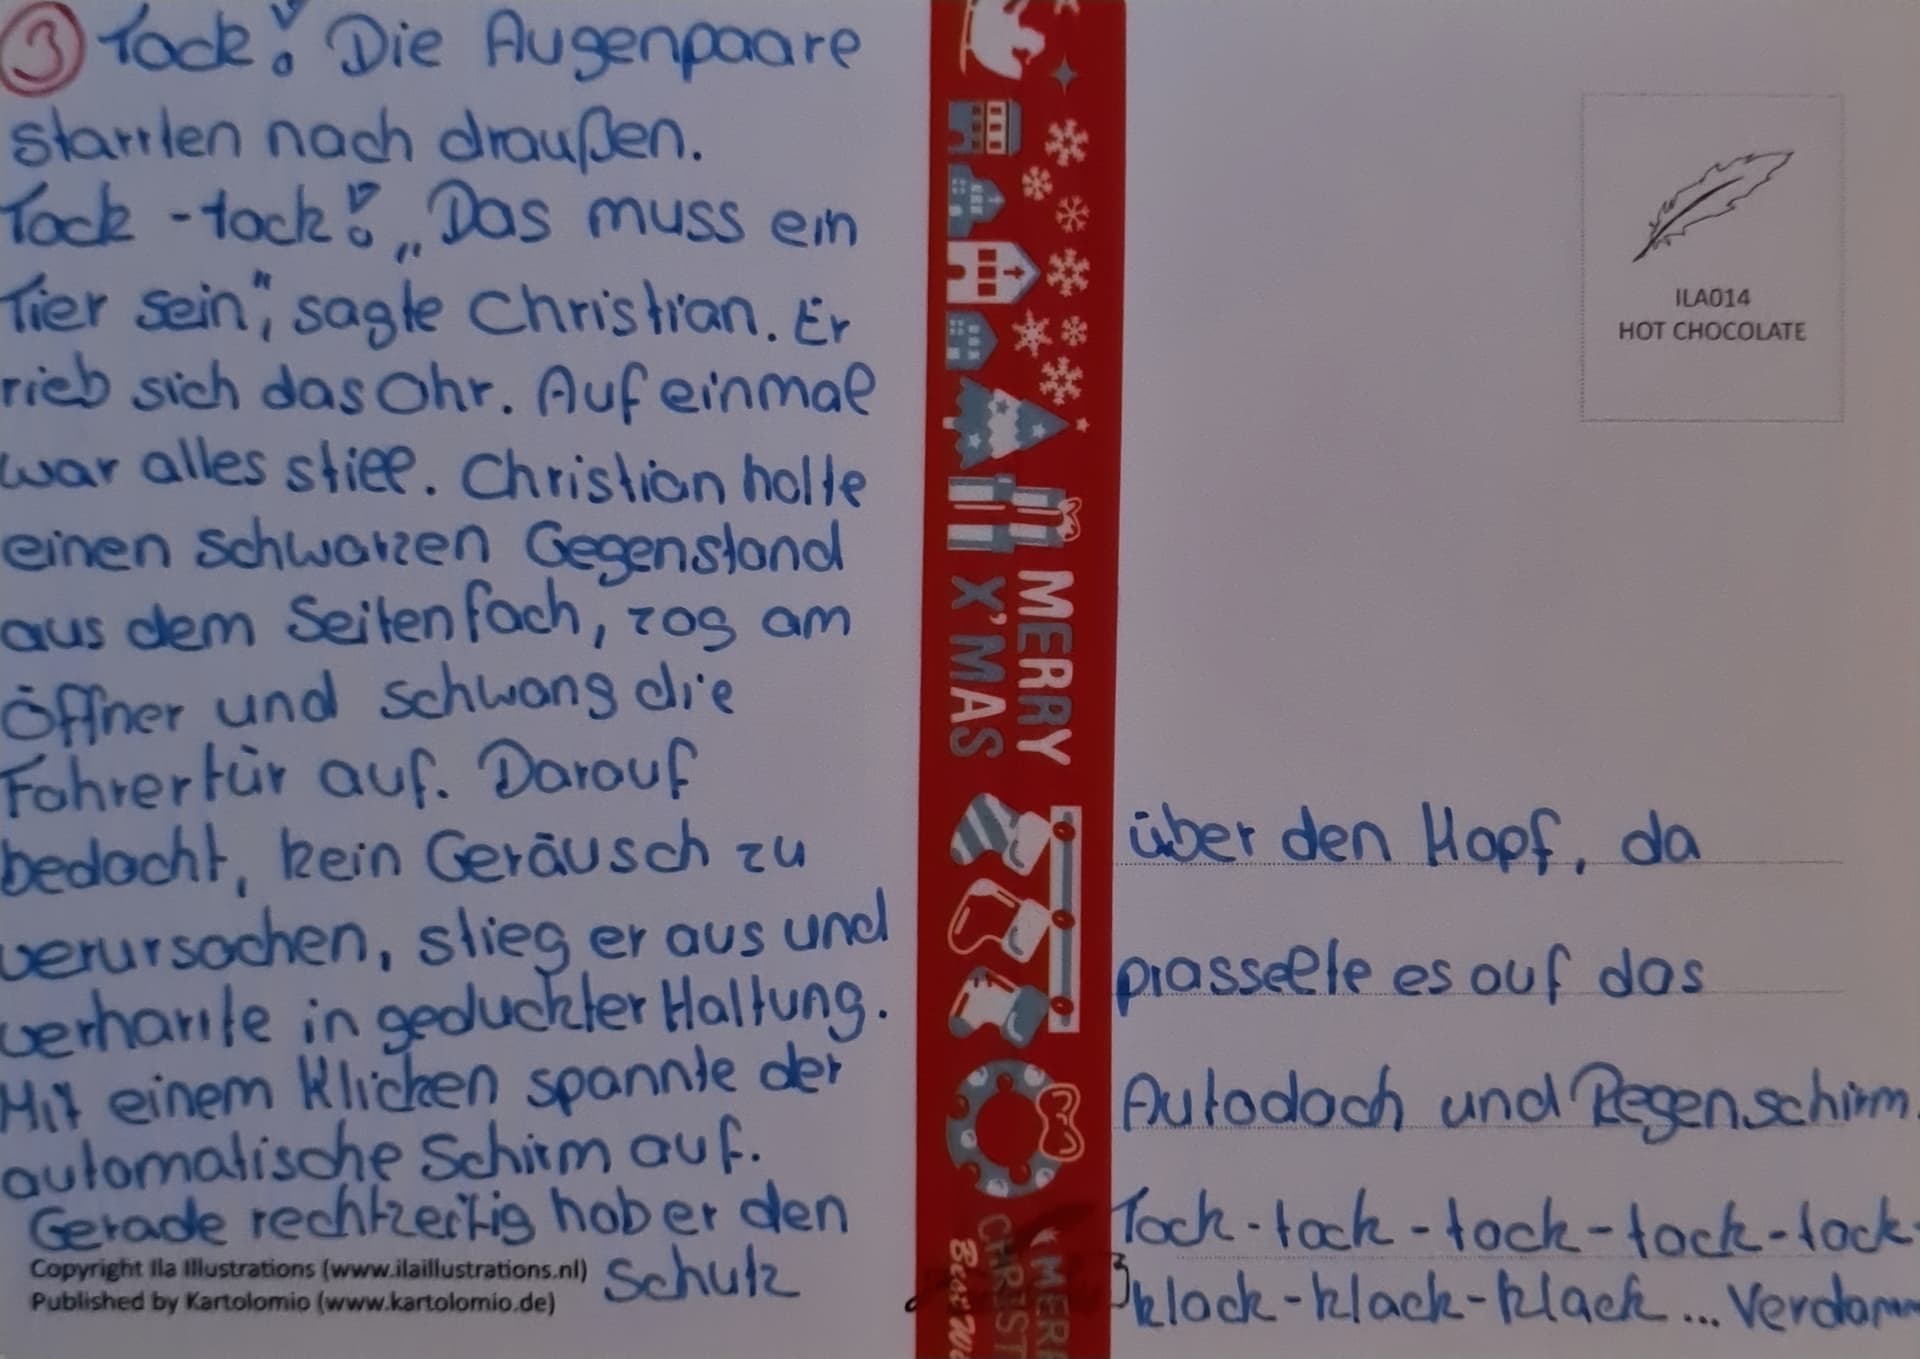 3 Tock! Die Augenpaare
starrten nach draußen.
Tock - tock! „Das muss ein
Tier sein", sagte Christian. Er
rieb sich das Ohr. Auf einmal
war alles still. Christian holte
einen schwarzen Gegenstand
aus dem Seitenfach, zog am
Öffner und schwang die
Fahrertür auf. Darauf
bedacht, kein Geräusch zu
verursachen, stieg er aus und
verharrte in geduckter Haltung.
Mit einem Klicken spannte der
automatische Schirm auf.
Gerade rechtzeitig hob er den
Schutz
Copyright Ila Illustrations (www.ilaillustrations.nl)
Published by Kartolomio (www.kartolomio.de)
MERRY
X'MAS
MER
CHRIST
Best W
ILA014
HOT CHOCOLATE
über den Kopf, da
prasselte es auf das
Autodach und Regenschirm.
Tock - tock - tock - tock - tock -
klack - klack - klack ... Verdamm